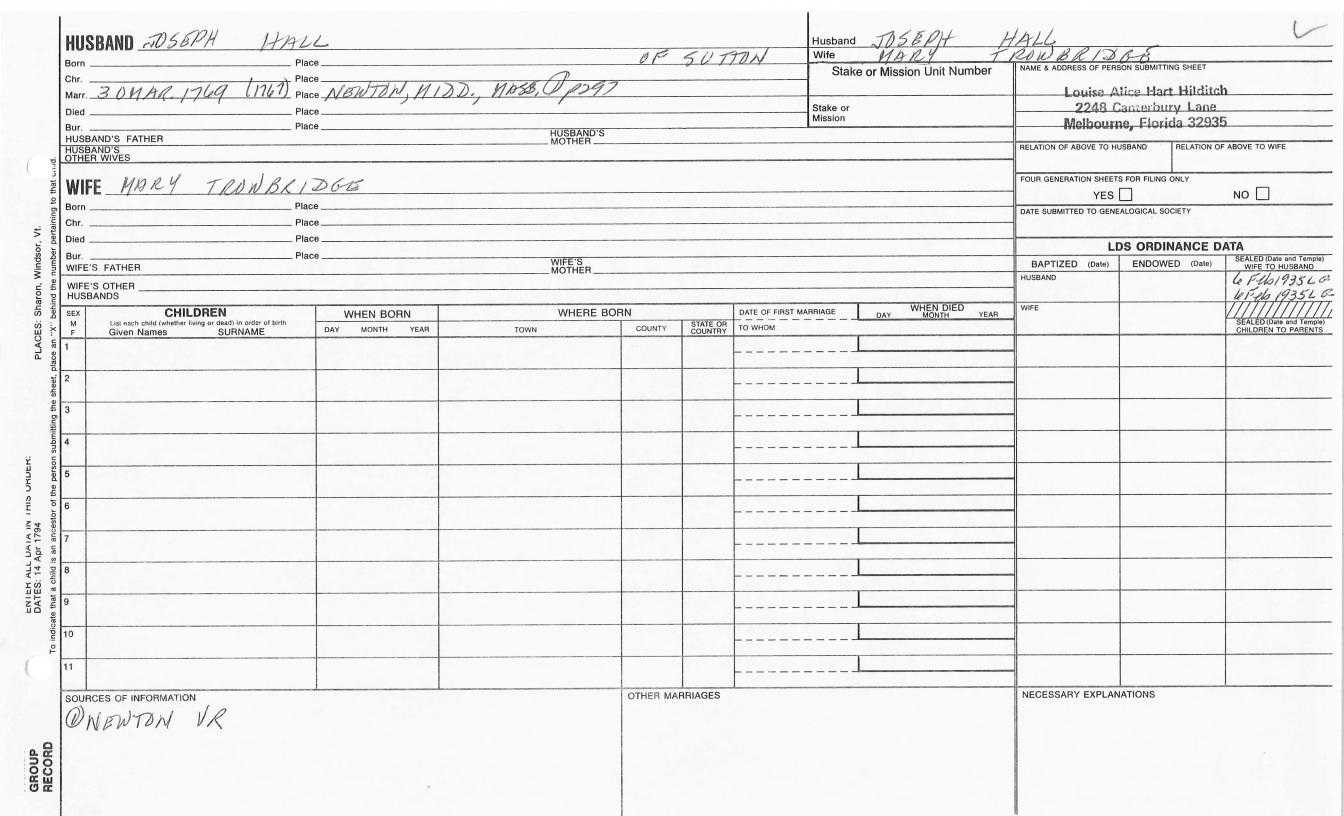 HUSBAND JOSEPH HALL
Born Place OF SUTTON
Chr. Place
Marr. 30 MAR. 1769 (1767) Place NEWTON, MIDD., MASS. ① p297
Died Place
Bur. Place
HUSBAND'S FATHER HUSBAND'S MOTHER
HUSBAND'S OTHER WIVES
Husband JOSEPH HALL
Wife MARY TROWBRIDGE
Stake or Mission Unit Number
Stake or Mission
NAME & ADDRESS OF PERSON SUBMITTING SHEET
Louise Alice Hart Hilditch
2248 Canterbury Lane
Melbourne, Florida 32935
RELATION OF ABOVE TO HUSBAND RELATION OF ABOVE TO WIFE
FOUR GENERATION SHEETS FOR FILING ONLY
YES NO
DATE SUBMITTED TO GENEALOGICAL SOCIETY
WIFE MARY TROWBRIDGE
Born Place
Chr. Place
Died Place
Bur. Place
WIFE'S FATHER WIFE'S MOTHER
WIFE'S OTHER HUSBANDS
LDS ORDINANCE DATA
BAPTIZED (Date) ENDOWED (Date) SEALED (Date and Temple) WIFE TO HUSBAND
HUSBAND 6 Feb 1935 LG
6 Feb 1935 LG
WIFE
SEALED (Date and Temple) CHILDREN TO PARENTS
SEX M F
CHILDREN
List each child (whether living or dead) in order of birth
Given Names SURNAME
WHEN BORN
DAY MONTH YEAR
WHERE BORN
TOWN COUNTY STATE OR COUNTRY
DATE OF FIRST MARRIAGE
TO WHOM
WHEN DIED
DAY MONTH YEAR
1
2
3
4
5
6
7
8
9
10
11
SOURCES OF INFORMATION
① NEWTON VR
OTHER MARRIAGES
NECESSARY EXPLANATIONS
PLACES: Sharon, Windsor, Vt.
ENTER ALL DATA IN THIS ORDER:
DATES: 14 Apr 1794
To indicate that a child is an ancestor of the person submitting the sheet, place an "X" behind the number pertaining to that child.
GROUP RECORD